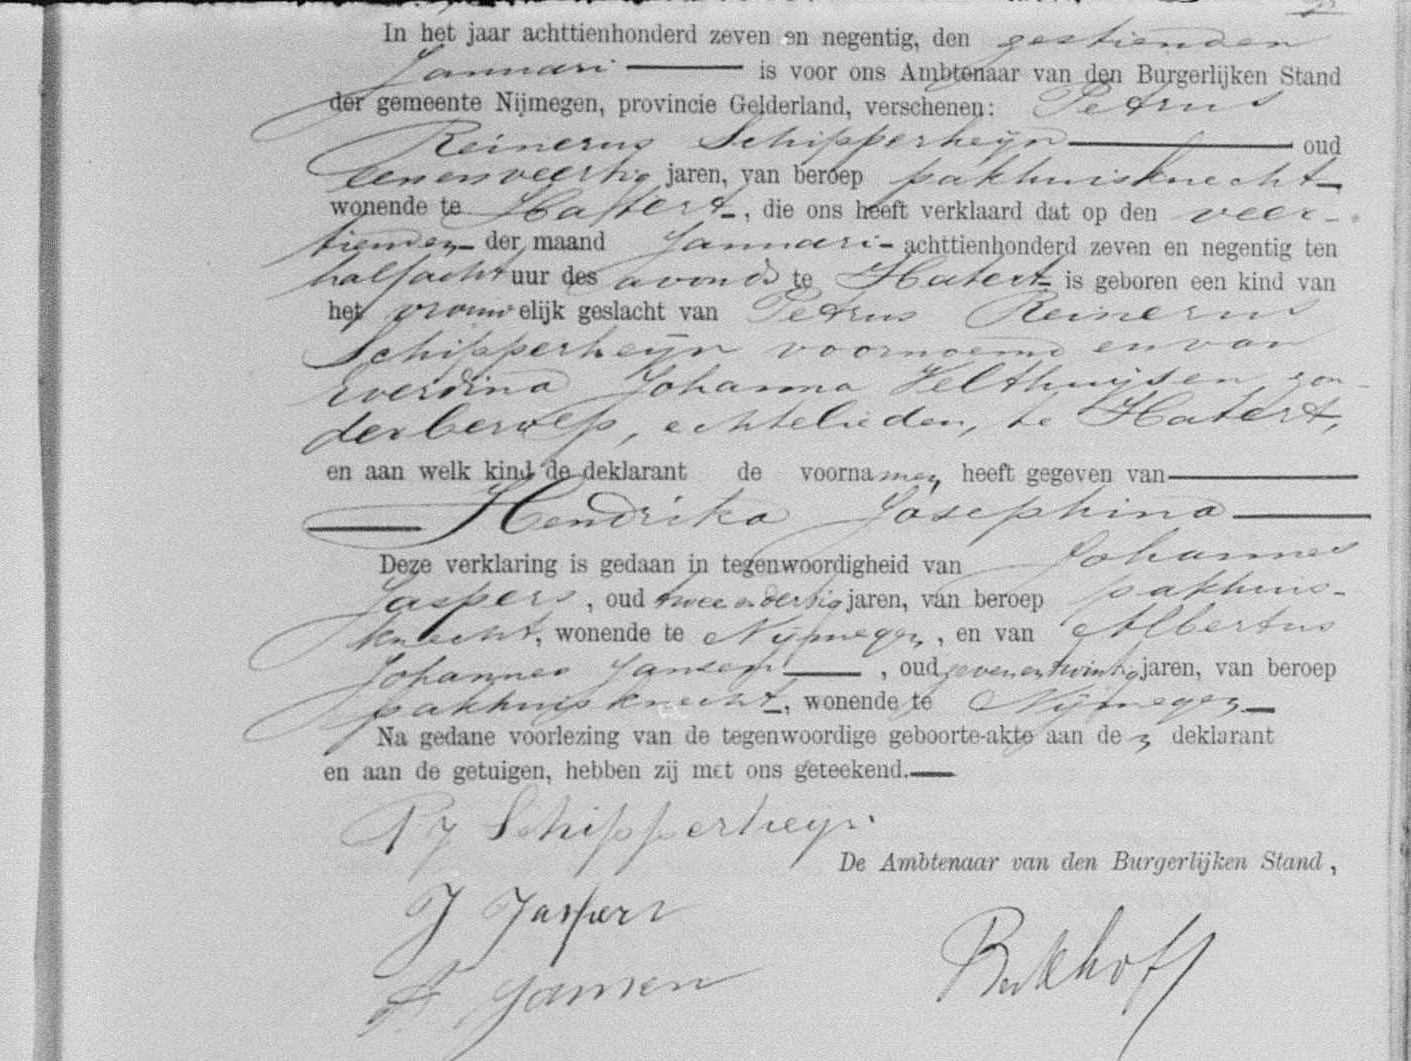 In het jaar achttienhonderd zeven en negentig, den zestienden
Januari is voor ons Ambtenaar van den Burgerlijken Stand
der gemeente Nijmegen, provincie Gelderland, verschenen: Petrus
Reinerus Schipperheijn oud
eenenveertig jaren, van beroep pakhuisknecht
wonende te Hatert, die ons heeft verklaard dat op den veer-
tienden der maand Januari achttienhonderd zeven en negentig ten
halfacht uur des avonds te Hatert is geboren een kind van
het vrouwelijk geslacht van Petrus Reinerus
Schipperheijn voornoemd en van
Everdina Johanna Velthuijsen, zon-
der beroep, echtelieden, te Hatert,
en aan welk kind de deklarant de voornamen heeft gegeven van
Hendrika Josephina
Deze verklaring is gedaan in tegenwoordigheid van Johannes
Jaspers, oud tweeendertig jaren, van beroep pakhuis-
knecht, wonende te Nijmegen, en van Albertus
Johannes Jansen, oud zevenentwintig jaren, van beroep
pakhuisknecht, wonende te Nijmegen
Na gedane voorlezing van de tegenwoordige geboorte-akte aan de deklarant
en aan de getuigen, hebben zij met ons geteekend.
Schipperheijn
De Ambtenaar van den Burgerlijken Stand,
J Jaspers
Jansen